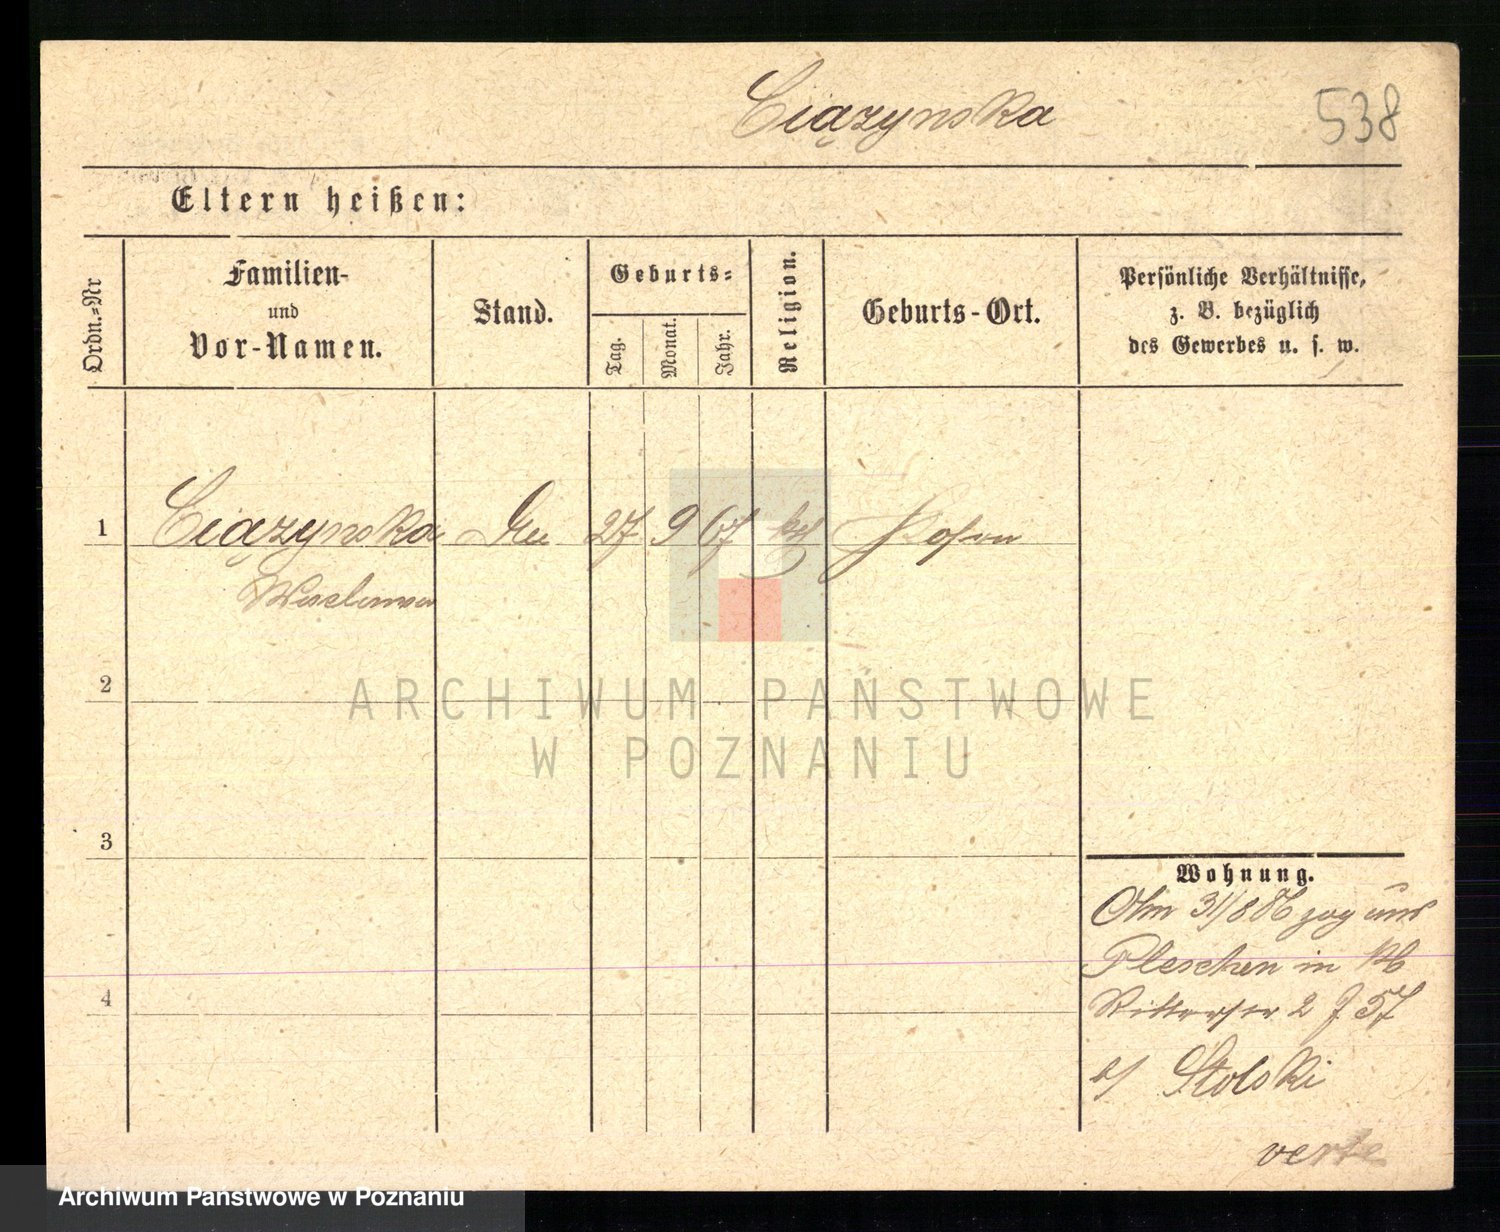 Ciązynska
538
Eltern heißen:
Ordn.-Nr
Familien-
und
Vor-Namen.
Stand.
Geburts-
Tag.
Monat.
Jahr.
Religion.
Geburts-Ort.
Persönliche Verhältnisse,
z. B. bezüglich
des Gewerbes u. s. w.
1 Ciązynska 27 9 67 kth Posen
2
3
4
Wohnung.
31/8 86 zog aus
Pleschen in
Ritterstr 2 J 57
b/ Stolski
verte
ARCHIWUM PAŃSTWOWE
W POZNANIU
Archiwum Państwowe w Poznaniu